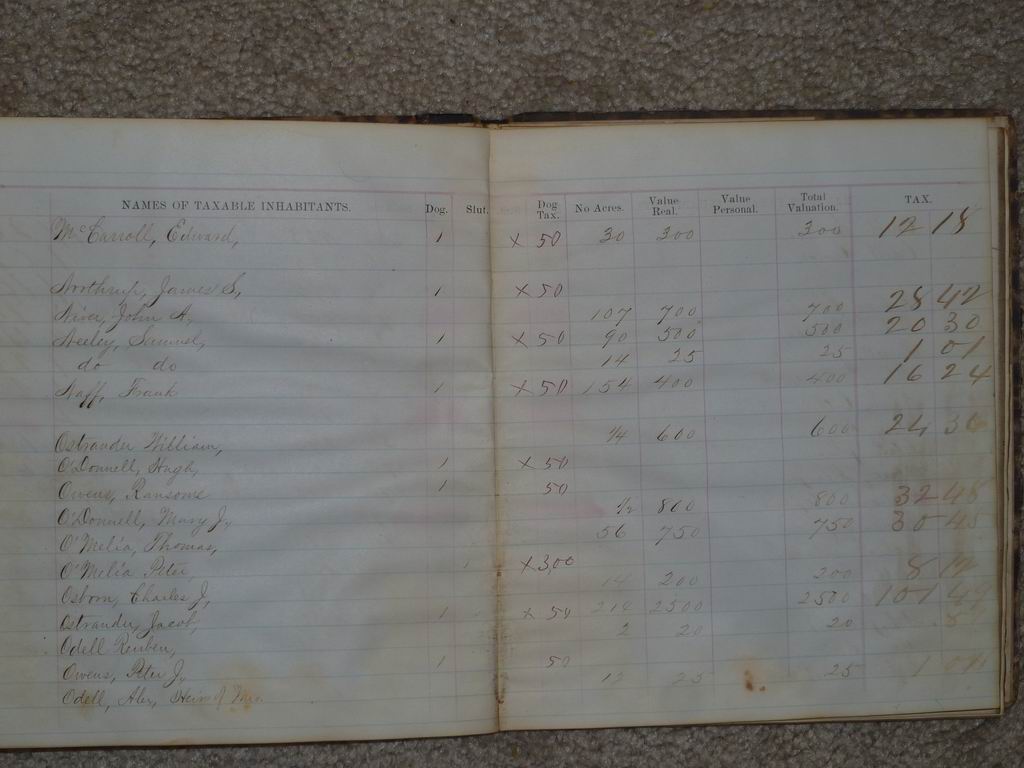 NAMES OF TAXABLE INHABITANTS. Dog. Slut. Dog Tax. No Acres. Value Real. Value Personal. Total Valuation. TAX.
McCarroll, Edward, 1 x 50 30 300 300 12 18
Northrup, James S, 1 x 50
Niver, John A, 107 700 700 28 42
Neeley, Samuel, 1 x 50 90 500 500 20 30
do do 14 25 25 1 01
Naff, Frank 1 x 50 154 400 400 16 24
Ostrander William, ¼ 600 600 24 36
O'Donnell, Hugh, 1 x 50
Owens, Ransome 1 50
O'Donnell, Mary J, ½ 800 800 32 48
O'Melia, Thomas, 56 750 750 30 45
O'Melia Peter, 1 x 3,00
Osborn, Charles J, 14 200 200 8 12
Ostrander, Jacob, 1 x 50 214 2500 2500 101
Odell Reuben, 2 20 20
Owens, Peter J, 1 50
Odell, Alex, Heirs of 12 25 25 1 01